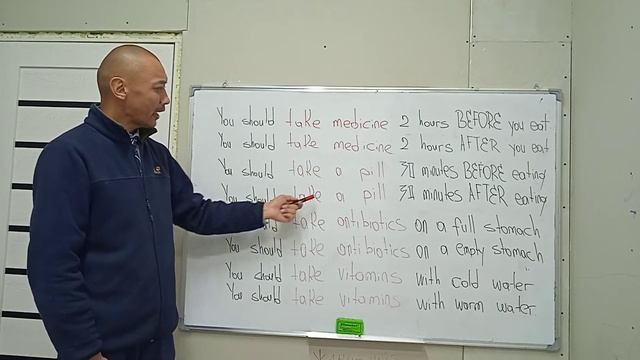 You should take medicine 2 hours BEFORE you eat
You should take medicine 2 hours AFTER you eat
You should take a pill 30 minutes BEFORE eating
You should take a pill 30 minutes AFTER eating
should take antibiotics on a full stomach
You should take antibiotics on a empty stomach
You should take vitamins with cold water
You should take vitamins with warm water.